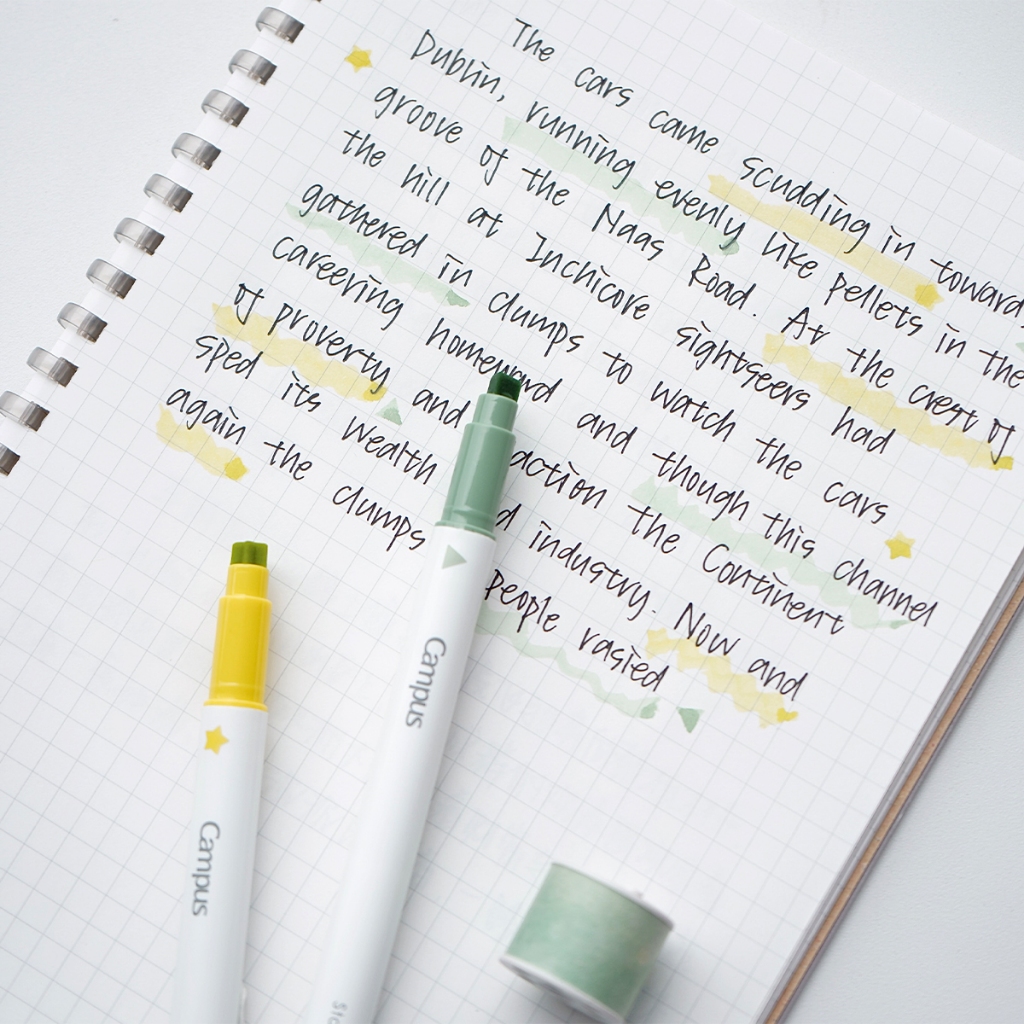 The cars came scudding in towards
Dublin, running evenly like pellets in the
groove of the Naas Road. At the crest of
the hill at Inchicore sightseers had
gathered in clumps to watch the cars
careering homeward and though this channel
of proverty and action the Continent
sped its wealth industry. Now and
again the clumps people rasied
Campus
Campus